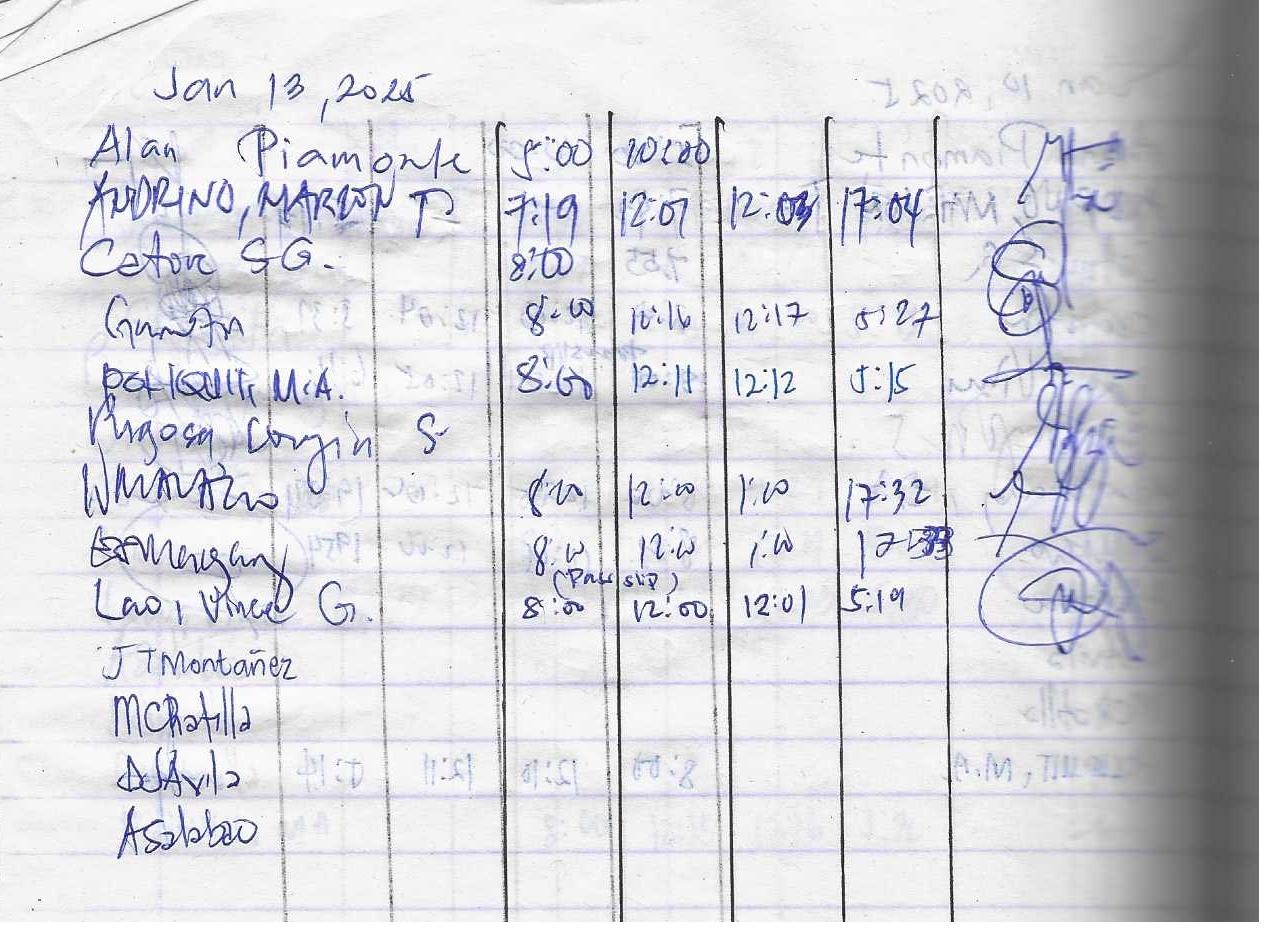 Jan 13, 2025
Alan Piamonte 8:00 10:00
ANDRINO, MARLON P 7:19 12:01 12:03 17:04
S.G. 8:00
8:00 12:16 12:17 5:27
M.A. 8:00 12:11 12:12 5:15
S
8:00 12:00 1:00 17:32
8:00 12:00 1:00 17:33
(Pass slip)
Lao, Vince G. 8:00 12:00 12:01 5:19
JTMontañez
MCRatilla
DJAvila
Asalabao